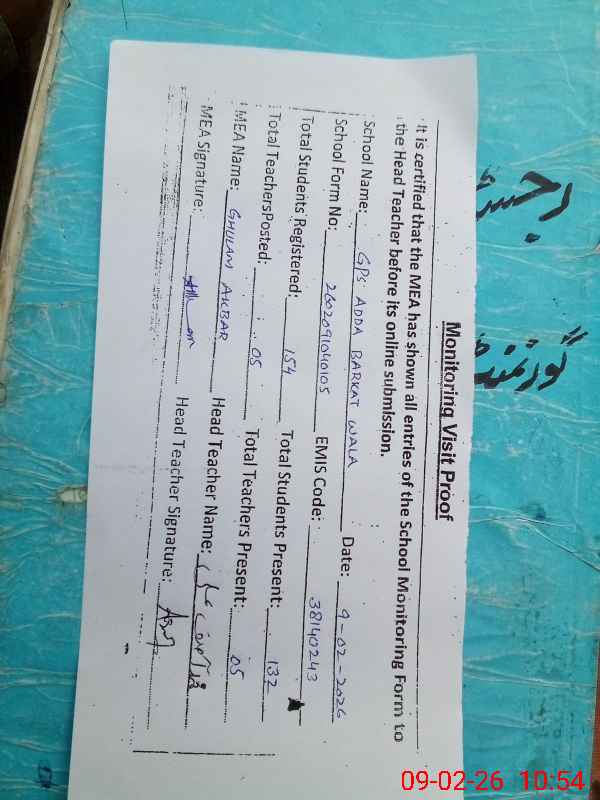 Monitoring Visit Proof
It is certified that the MEA has shown all entries of the School Monitoring Form to
the Head Teacher before its online submission.
School Name: GPS ADDA BARKAT WALA Date: 9-02-2026
School Form No: 2602091040105 EMIS Code: 38140243
Total Students Registered: 154 Total Students Present: 132
Total Teachers Posted: 05 Total Teachers Present: 05
MEA Name: GHULAM AKBAR Head Teacher Name:
MEA Signature: Head Teacher Signature:
09-02-26 10:54